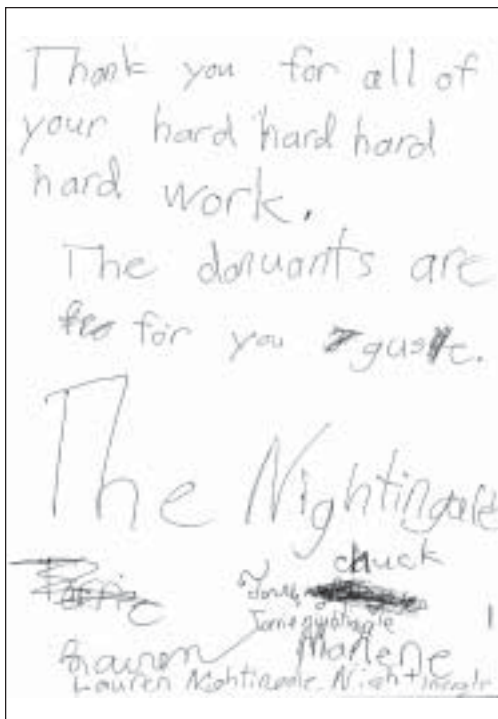 Thank you for all of
your hard hard hard
hard work.
The donuants are
for you guse.
The Nightingale
chuck
Jamie nightingale
Lauren Marlene
Lauren Nightingale. Nightingale